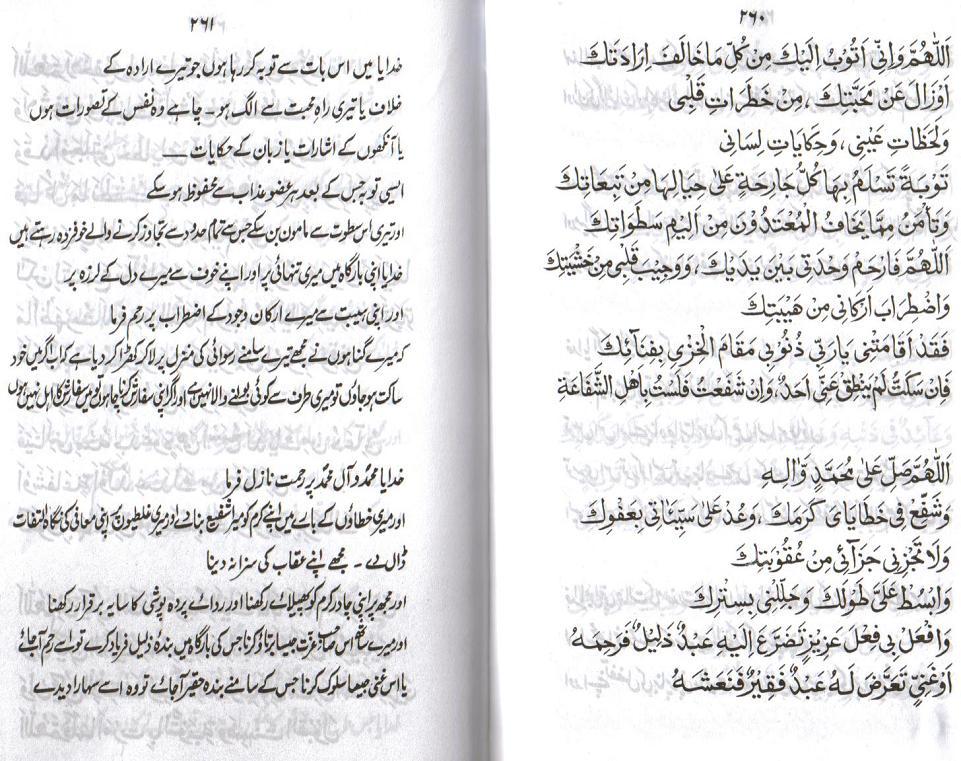 ٢٦٠
اَللّٰهُمَّ وَاِنِّيْ اَتُوْبُ اِلَيْكَ مِنْ كُلِّ مَا خَالَفَ اِرَادَتَكَ
اَوْ زَالَ عَنْ مَحَبَّتِكَ ، مِنْ خَطَرَاتِ قَلْبِيْ
وَلَحَظَاتِ عَيْنِيْ ، وَحِكَايَاتِ لِسَانِيْ
تَوْبَةً تَسْلَمُ بِهَا كُلُّ جَارِحَةٍ عَلٰى حِيَالِهَا مِنْ تَبِعَاتِكَ
وَتَأْمَنُ مِمَّا يَخَافُ الْمُعْتَدُوْنَ مِنْ اَلِيْمِ سَطَوَاتِكَ
اَللّٰهُمَّ فَارْحَمْ وَحْدَتِيْ بَيْنَ يَدَيْكَ ، وَوَجِيْبَ قَلْبِيْ مِنْ خَشْيَتِكَ
وَاضْطِرَابَ اَرْكَانِيْ مِنْ هَيْبَتِكَ
فَقَدْ اَقَامَتْنِيْ يَا رَبِّ ذُنُوْبِيْ مَقَامَ الْخِزْيِ بِفِنَآئِكَ
فَاِنْ سَكَتُّ لَمْ يَنْطِقْ عَنِّيْ اَحَدٌ ، وَاِنْ شَفَعْتُ فَلَسْتُ بِاَهْلِ الشَّفَاعَةِ
اَللّٰهُمَّ صَلِّ عَلٰى مُحَمَّدٍ وَّاٰلِهٖ
وَشَفِّعْ فِيْ خَطَايَايَ كَرَمَكَ ، وَعُدْ عَلٰى سَيِّئَاتِيْ بِعَفْوِكَ
وَلَا تَجْزِنِيْ جَزَآئِيْ مِنْ عُقُوْبَتِكَ
وَابْسُطْ عَلَيَّ طَوْلَكَ وَجَلِّلْنِيْ بِسِتْرِكَ
وَافْعَلْ بِيْ فِعْلَ عَزِيْزٍ تَضَرَّعَ اِلَيْهِ عَبْدٌ ذَلِيْلٌ فَرَحِمَهُ
اَوْ غَنِيٍّ تَعَرَّضَ لَهُ عَبْدٌ فَقِيْرٌ فَنَعَشَهُ
٢٦١
خدایا میں اس بات سے توبہ کر رہا ہوں جو تیرے ارادہ کے
خلاف یا تیری راہِ محبت سے الگ ہو ۔ چاہے وہ نفس کے تصورات ہوں
یا آنکھوں کے اشارات یا زبان کے حکایات ــــ
ایسی توبہ جس کے بعد ہر عضو عذاب سے محفوظ ہو سکے
اور تیری اس سطوت سے مامون بن سکے جس سے تمام حدود سے تجاوز کرنے والے خوفزدہ رہتے ہیں
خدایا اپنی بارگاہ میں میری تنہائی پر اور اپنے خوف سے میرے دل کے لرزہ پر
اور اپنی ہیبت سے میرے ارکان وجود کے اضطراب پر رحم فرما
کہ میرے گناہوں نے مجھے تیرے سامنے رسوائی کی منزل پر لا کر کھڑا کر دیا ہے کہ اب اگر میں خود
ساکت ہو جاؤں تو میری طرف سے کوئی بولنے والا نہیں ہے اور اگر اپنی سفارش کرنا چاہوں تو میں سفارش کا اہل نہیں ہوں
خدایا محمدؐ و آل محمدؐ پر رحمت نازل فرما
اور میری خطاؤں کے بارے میں اپنے کرم کو میرا شفیع بنا دے اور میری غلطیوں پر اپنی معافی کی نگاہ التفات
ڈال دے ۔ مجھے اپنے عقاب کی سزا نہ دینا
اور مجھ پر اپنی چادر کرم کو پھیلائے رکھنا اور ردائے پردہ پوشی کا سایہ برقرار رکھنا
اور میرے ساتھ اس صاحب عزت جیسا برتاؤ کرنا جس کی بارگاہ میں بندہ ذلیل فریاد کرے تو اسے رحم آجائے
یا اس غنی جیسا سلوک کرنا جس کے سامنے بندہ حقیر آجائے تو وہ اسے سہارا دیدے